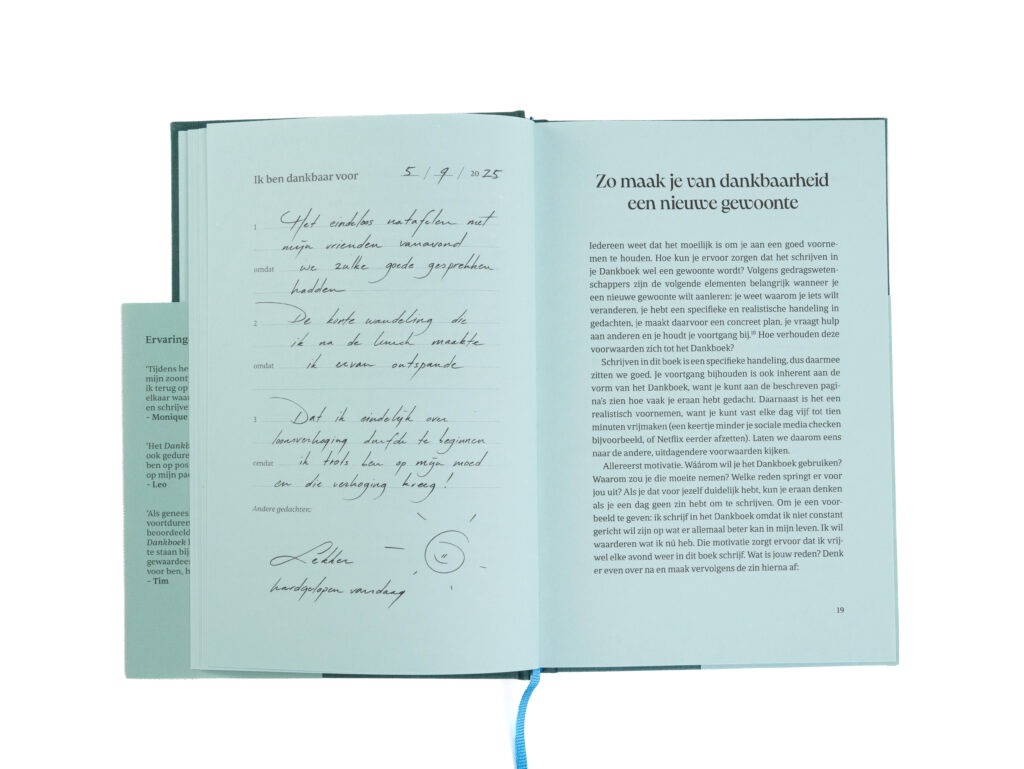 Ervaring
'Tijdens he
mijn zoont
ik terug op
elkaar waa
en schrijve
– Monique
'Het Dankb
ook gedure
ben op pos
op mijn pa
– Leo
'Als genees
voortduren
beoordeeld
Dankboek
te staan bij
gewaardee
voor ben, h
– Tim
Ik ben dankbaar voor 5 / 9 / 2025
1 Het eindeloos natafelen met
mijn vrienden vanavond
omdat we zulke goede gesprekken
hadden
2 De korte wandeling die
ik na de lunch maakte
omdat ik ervan ontspande
3 Dat ik eindelijk over
loonsverhoging durfde te beginnen
omdat ik trots ben op mijn moed
en die verhoging kreeg!
Andere gedachten:
Lekker
hardgelopen vandaag
Zo maak je van dankbaarheid
een nieuwe gewoonte
Iedereen weet dat het moeilijk is om je aan een goed voorne-
men te houden. Hoe kun je ervoor zorgen dat het schrijven in
je Dankboek wel een gewoonte wordt? Volgens gedragsweten-
schappers zijn de volgende elementen belangrijk wanneer je
een nieuwe gewoonte wilt aanleren: je weet waarom je iets wilt
veranderen, je hebt een specifieke en realistische handeling in
gedachten, je maakt daarvoor een concreet plan, je vraagt hulp
aan anderen en je houdt je voortgang bij.¹⁰ Hoe verhouden deze
voorwaarden zich tot het Dankboek?
Schrijven in dit boek is een specifieke handeling, dus daarmee
zitten we goed. Je voortgang bijhouden is ook inherent aan de
vorm van het Dankboek, want je kunt aan de beschreven pagi-
na's zien hoe vaak je eraan hebt gedacht. Daarnaast is het een
realistisch voornemen, want je kunt vast elke dag vijf tot tien
minuten vrijmaken (een keertje minder je sociale media checken
bijvoorbeeld, of Netflix eerder afzetten). Laten we daarom eens
naar de andere, uitdagendere voorwaarden kijken.
Allereerst motivatie. Wáárom wil je het Dankboek gebruiken?
Waarom zou je die moeite nemen? Welke reden springt er voor
jou uit? Als je dat voor jezelf duidelijk hebt, kun je eraan denken
als je een dag geen zin hebt om te schrijven. Om je een voor-
beeld te geven: ik schrijf in het Dankboek omdat ik niet constant
gericht wil zijn op wat er allemaal beter kan in mijn leven. Ik wil
waarderen wat ik nú heb. Die motivatie zorgt ervoor dat ik vrij-
wel elke avond weer in dit boek schrijf. Wat is jouw reden? Denk
er even over na en maak vervolgens de zin hierna af:
19